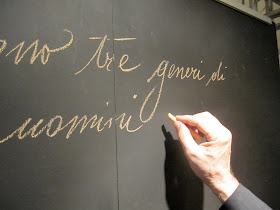 trè generi di
uomini